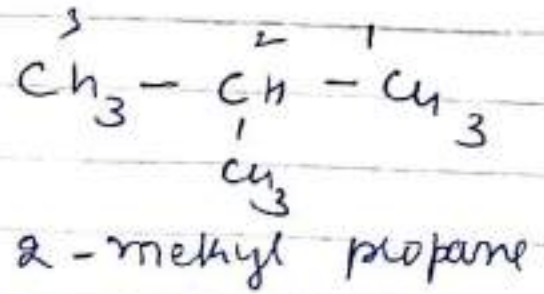 3 2 1
CH3 - CH - CH3
CH3
2 - methyl propane